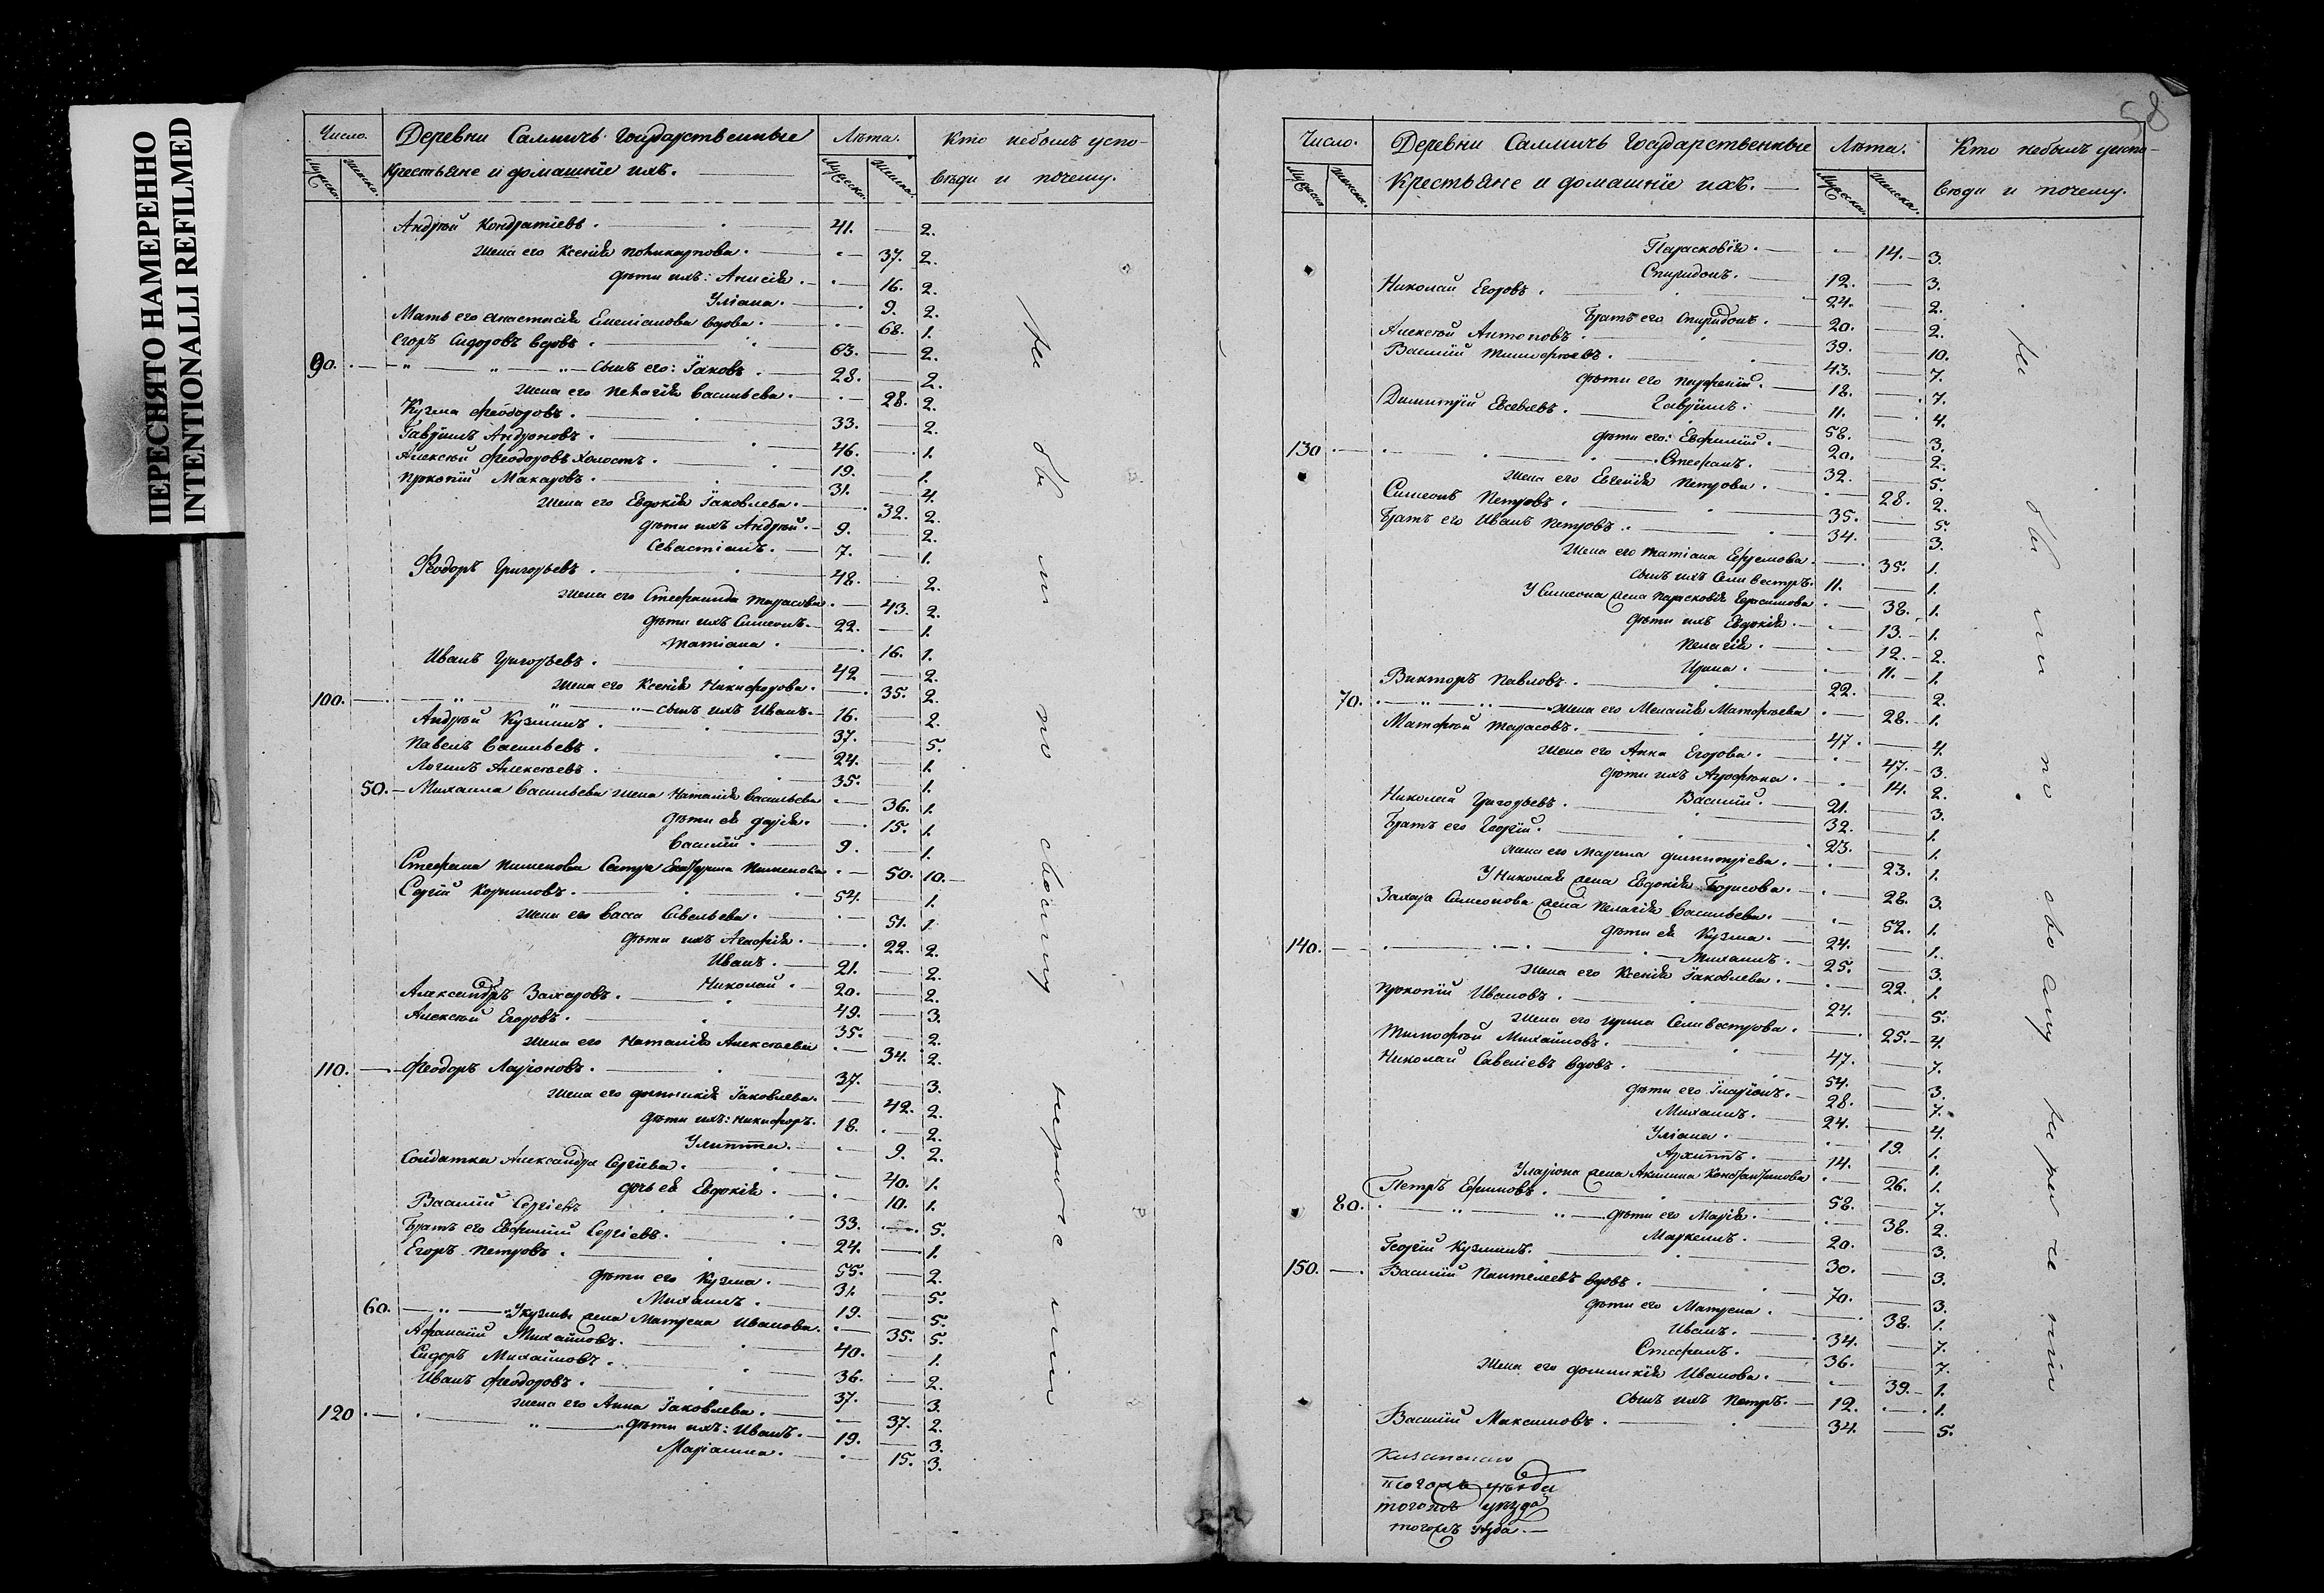 ПЕРЕСНЯТО НАМЕРЕННО
INTENTIONALLI REFILMED
Число. Деревни Саллмичъ Государственные Лѣта. Кто небылъ успо-
Мужеска. Женска. Крестьяне и домашніе ихъ. Мужеска. Женска. вѣди и почему.
Андрей Кондратіевъ. 41. 2.
Жена его Ксенія Поликарпова. 37. 2.
Дѣти ихъ: Анисія. 16. 2.
Уліана. 9. 2.
Мать его Анастасія Емеліанова вдова. 68. 1.
Егоръ Сидоровъ вдовъ. 63. 2.
90. сынъ его: Іаковъ. 28. 2.
Жена его Пелагія Васильева. 28. 2.
Кузма Феодоровъ. 33. 2.
Гавріилъ Андроновъ. 46. 1.
Алексѣй Феодоровъ холостъ. 19. 1.
Прокопій Макаровъ. 31. 4.
Жена его Евдокія Іаковлева. 32. 2.
Дѣти ихъ Андрей. 9. 2.
Севастіанъ. 7. 1.
Феодоръ Григорьевъ. 48. 2.
Жена его Стефанида Тарасова. 43. 2.
Дѣти ихъ Симеонъ. 22. 1.
Татіана. 16. 1.
Иванъ Григорьевъ. 42 2.
Жена его Ксенія Никифорова. 35. 2.
100. сынъ ихъ Иванъ. 16. 2.
Андрей Кузминъ. 37. 5.
Павелъ Васильевъ. 24. 1.
Логинъ Алексѣевъ. 35. 1.
50. Михаила Васильева жена Наталія Васильева 36. 1.
Дѣти ея Дарія. 15. 1.
Василій. 9. 1.
Стефана Пименова Сестра Екатерина Пименова 50. 10.
Сергій Корниловъ. 54. 1.
Жена его Васса Савельева. 51. 1.
Дѣти ихъ Агафія. 22. 2.
Иванъ. 21. 2.
Николай. 20. 2.
Александръ Захаровъ. 49. 3.
Алексѣй Егоровъ. 35. 2.
Жена его Наталія Алексѣева 34. 2.
110. Феодоръ Ларіоновъ. 37. 3.
Жена его Домникія Іаковлева. 42. 2.
Дѣти ихъ: Никифоръ. 18. 2.
Улитта. 9. 2.
Солдатка Александра Сергіева. 40. 1.
дочь ея Евдокія. 10. 1.
Василій Сергіевъ 33. 5.
Братъ его Евфимій Сергіевъ. 24. 1.
Егоръ Петровъ. 55. 2.
Дѣти его Кузма. 31. 5.
Михаилъ. 19. 5.
60. У Кузмы жена Матрена Иванова. 35. 5.
Афанасій Михайловъ. 40. 1.
Сидоръ Михайловъ. 36. 2.
Иванъ Феодоровъ. 37. 3.
Жена его Анна Іаковлева. 37. 2.
120 Дѣти ихъ: Иванъ. 19. 3.
Маріанна. 15. 3.
не были по своему нерачению
58
Число. Деревни Саллмичъ Государственные Лѣта. Кто небылъ успо-
Мужеска Женска. Крестьяне и домашніе ихъ. Мужеска. Женска. вѣди и почему.
Парасковія. 14. 3.
Спиридонъ. 12. 3.
Николай Егоровъ. 24. 2.
Братъ его Спиридонъ. 20. 2.
Алексѣй Антоновъ. 39. 10.
Василій Тимофѣевъ. 43. 7.
Дѣти его Парфеній. 18. 7.
Гавріилъ. 11. 4.
Димитрій Евсевьевъ. 58. 3.
130 Дѣти его: Евфимій. 20. 2.
Стефанъ. 32. 5.
Жена его Евгенія Петрова. 28. 2.
Симеонъ Петровъ. 35. 5.
Братъ его Иванъ Петровъ. 34. 3.
Жена его Татіана Ефремова. 35. 1.
Сынъ ихъ Селивестръ. 11. 1.
У Симеона жена Парасковія Герасимова 38. 1.
Дѣти ихъ Евдокія. 13. 1.
Пелагія. 12. 2.
Ирина. 11. 1.
Викторъ Павловъ. 22. 2.
70. Жена его Меланія Матофѣева 28. 1.
Матофѣй Тарасовъ. 47. 4.
Жена его Анна Егорова. 47. 3.
Дѣти ихъ Агрофѣна. 14. 2.
Василій. 21. 3.
Николай Григорьевъ. 32. 1.
Братъ его Георгій. 23. 1.
Жена его Марѳа Димитріева. 23. 1.
У Николая жена Евдокія Борисова. 28. 3.
Захара Симеонова жена Пелагія Васильева. 52. 1.
Дѣти ея Кузма. 24. 1.
140. Михаилъ. 25. 3.
Жена его Ксенія Іаковлева. 22. 1.
Прокопій Ивановъ. 24. 5.
Жена его Ирина Селивестрова. 25. 4.
Тимофѣй Михайловъ. 47. 7.
Николай Савеліевъ вдовъ. 54. 3.
Дѣти его Іларіонъ. 28. 7.
Михаилъ. 24. 4.
Уліана. 19. 1.
Архиппъ. 14. 1.
У Іларіона жена Акилина Константинова 26. 1.
Петръ Ефимовъ. 58. 7.
80. Дѣти его Марія. 38. 2.
Маркеллъ. 20. 3.
Георгій Кузминъ. 30. 3.
150. Василій Пантелеевъ вдовъ. 70. 3.
Дѣти его Матрена. 38. 1.
Иванъ. 34. 7.
Стефанъ. 36. 7.
Жена его Домникія Иванова. 39. 1.
Сынъ ихъ Петръ. 12. 1.
Василій Максимовъ. 34. 5.
тогожъ уѣзда
тогожъ уѣзда
не были по своему нерачению